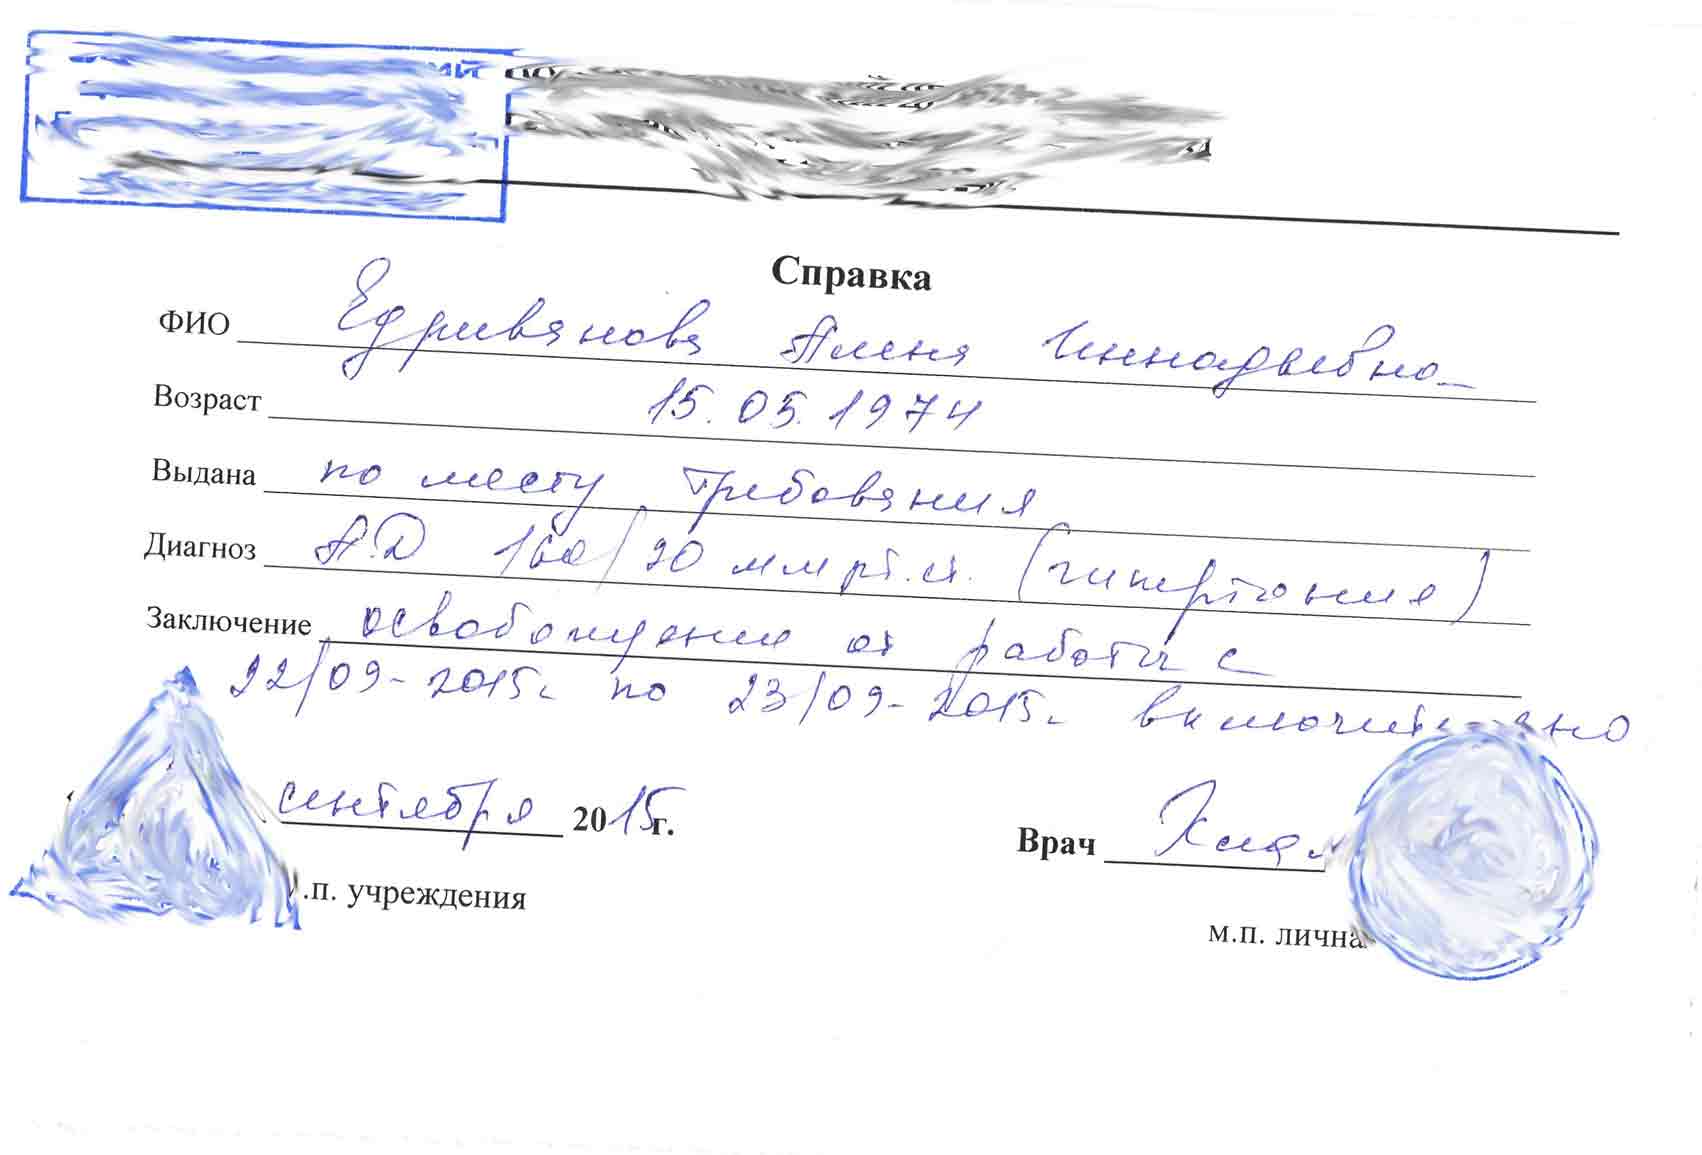 Справка
ФИО Едривянова Алена Геннадьевна
Возраст 15.05.1974
Выдана по месту требования
Диагноз АД 160/90 мм рт.ст. (гипертония)
Заключение освобождение от работы с
22/09-2015г. по 23/09-2015г. включительно
сентября 2015г. Врач
.п. учреждения м.п. лична